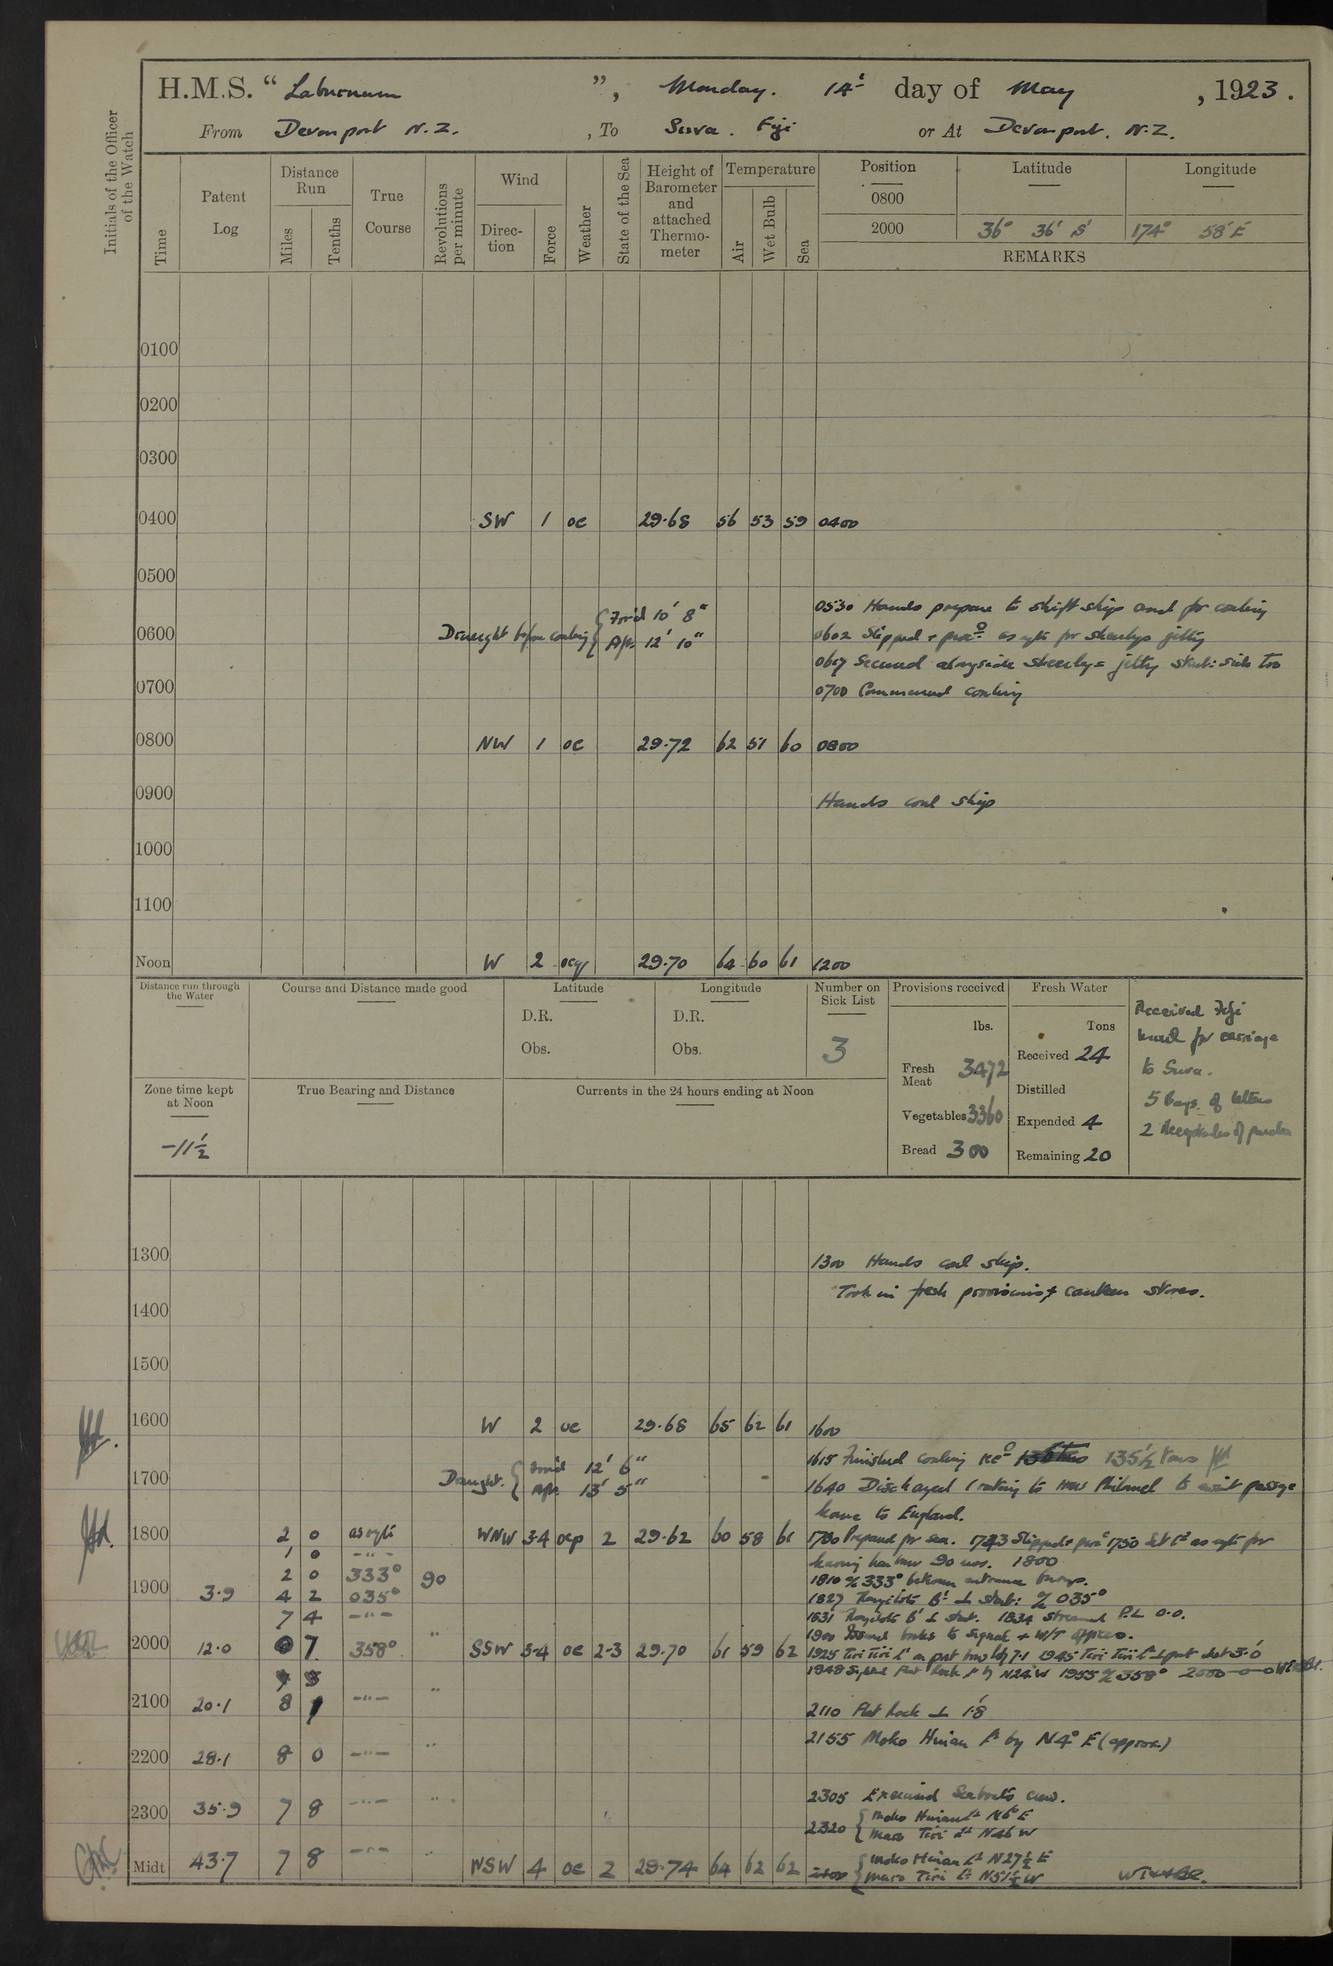 H.M.S. " Laburnum ", Monday. 14th day of May, 1923.
From Devonport N.Z., To Suva. Fiji or At Devonport. N.Z.
Initials of the Officer of the Watch
Time
Patent Log
Distance Run
Miles
Tenths
True Course
Revolutions per minute
Wind
Direction
Force
Weather
State of the Sea
Height of Barometer and attached Thermometer
Temperature
Air
Wet Bulb
Sea
Position Latitude Longitude
0800
2000 36° 36' S' 174° 58' E
REMARKS
0100
0200
0300
0400 SW 1 oc 29.68 56 53 59 0400
0500
0530 Hands prepare to shift ship and for coaling
0600 Draught before coaling { For'd 10' 8"
Aft. 12' 10"
0602 Slipped + proc° as reqte for jetty
0617 Secured alongside jetty stbd: side too
0700 0700 Commenced coaling
0800 NW 1 oc 29.72 62 51 60 0800
0900 Hands coal ship
1000
1100
Noon W 2 ocg 29.70 64 60 61 1200
Distance run through the Water
Course and Distance made good
Latitude
D.R.
Obs.
Longitude
D.R.
Obs.
Number on Sick List
3
Provisions received
lbs.
Fresh Meat 3472
Vegetables 3360
Bread 300
Fresh Water
Tons
Received 24
Distilled
Expended 4
Remaining 20
Received Fiji
mail for carriage
to Suva.
5 Bags of letters
2 Receptacles of parcels
Zone time kept at Noon
-11½
True Bearing and Distance
Currents in the 24 hours ending at Noon
1300 1300 Hands coal ship.
Took in fresh provisions + canteen stores.
1400
1500
1600 W 2 oc 29.68 65 62 61 1600
1615 Finished coaling rec° 135½ tons
1700 Draught. { For'd 12' 6"
Aft. 13' 5"
1640 Discharged 1 rating to HMS Philomel to await passage
home to England.
1800 2 0 as reqte WNW 3-4 ocp 2 29.62 60 58 61 1730 Prepared for sea. 1743 Slipped + proc° 1750 Set Cse as reqte for
1 0 -"- leaving harbour 90 revs. 1800
2 0 333° 90 1810 a/c 333° between entrance buoys.
1900 3.9 4 2 035° 1827 Rangitoto Bn ⊥ stbd: a/c 035°
7 4 -"- 1631 Rangitoto Bn ⊥ stbd. 1834 Streamed P.L 0.0.
1900 Issued books to Signal + W/T Offices.
2000 12.0 0 7 358° " SSW 3-4 oc 2-3 29.70 61 59 62 1925 Tiri Tiri Lt on port bow 7.1 1945 Tiri Tiri Lt ⊥ port dist 3.0
1948 Sighted Flat Rock Lt by N24°W 1955 a/c 358° 2000
2100 20.1 8 1 -"- "
2110 Flat Rock ⊥ 1.8
2155 Moko Hinau Lt by N4°E (approx.)
2200 28.1 8 0 -"- "
2300 35.9 7 8 -"- " 2305 Exercised Seaboats crew.
2320 { Moko Hinau Lt N6°E
Maro Tiri Lt N46W
Midt 43.7 7 8 -"- " WSW 4 oc 2 29.74 64 62 62 2400 { Moko Hinau Lt N27½E
Maro Tiri Lt N51½W